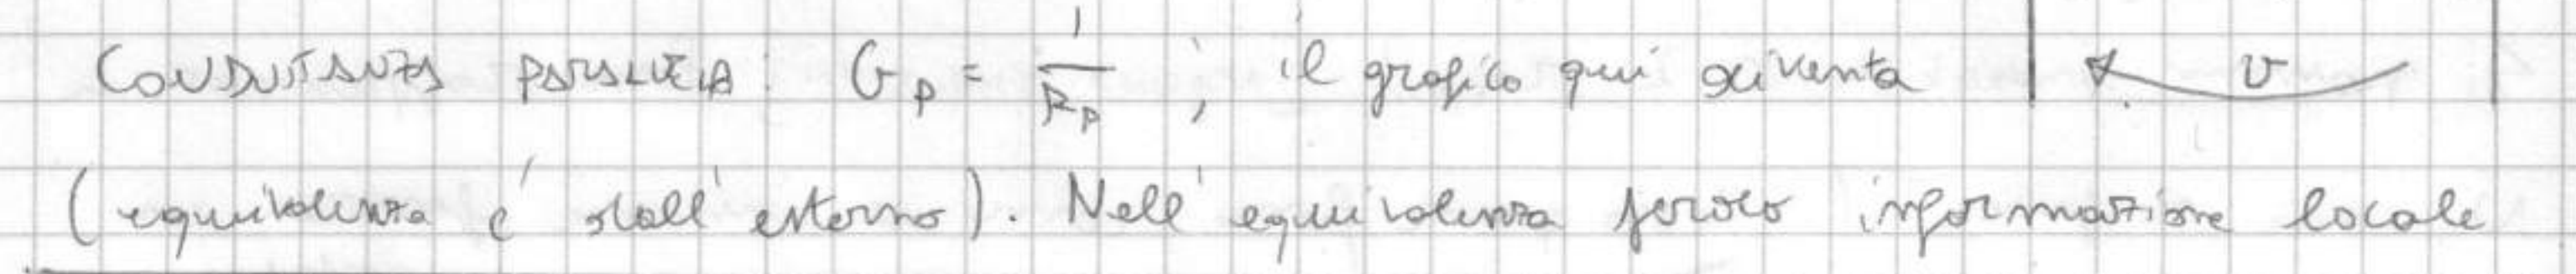 CONDUTTANZA PARALLELA: Gp = 1/Rp ; il grafico qui diventa v
(equivalenza è dall'esterno). Nell'equivalenza perdo informazione locale